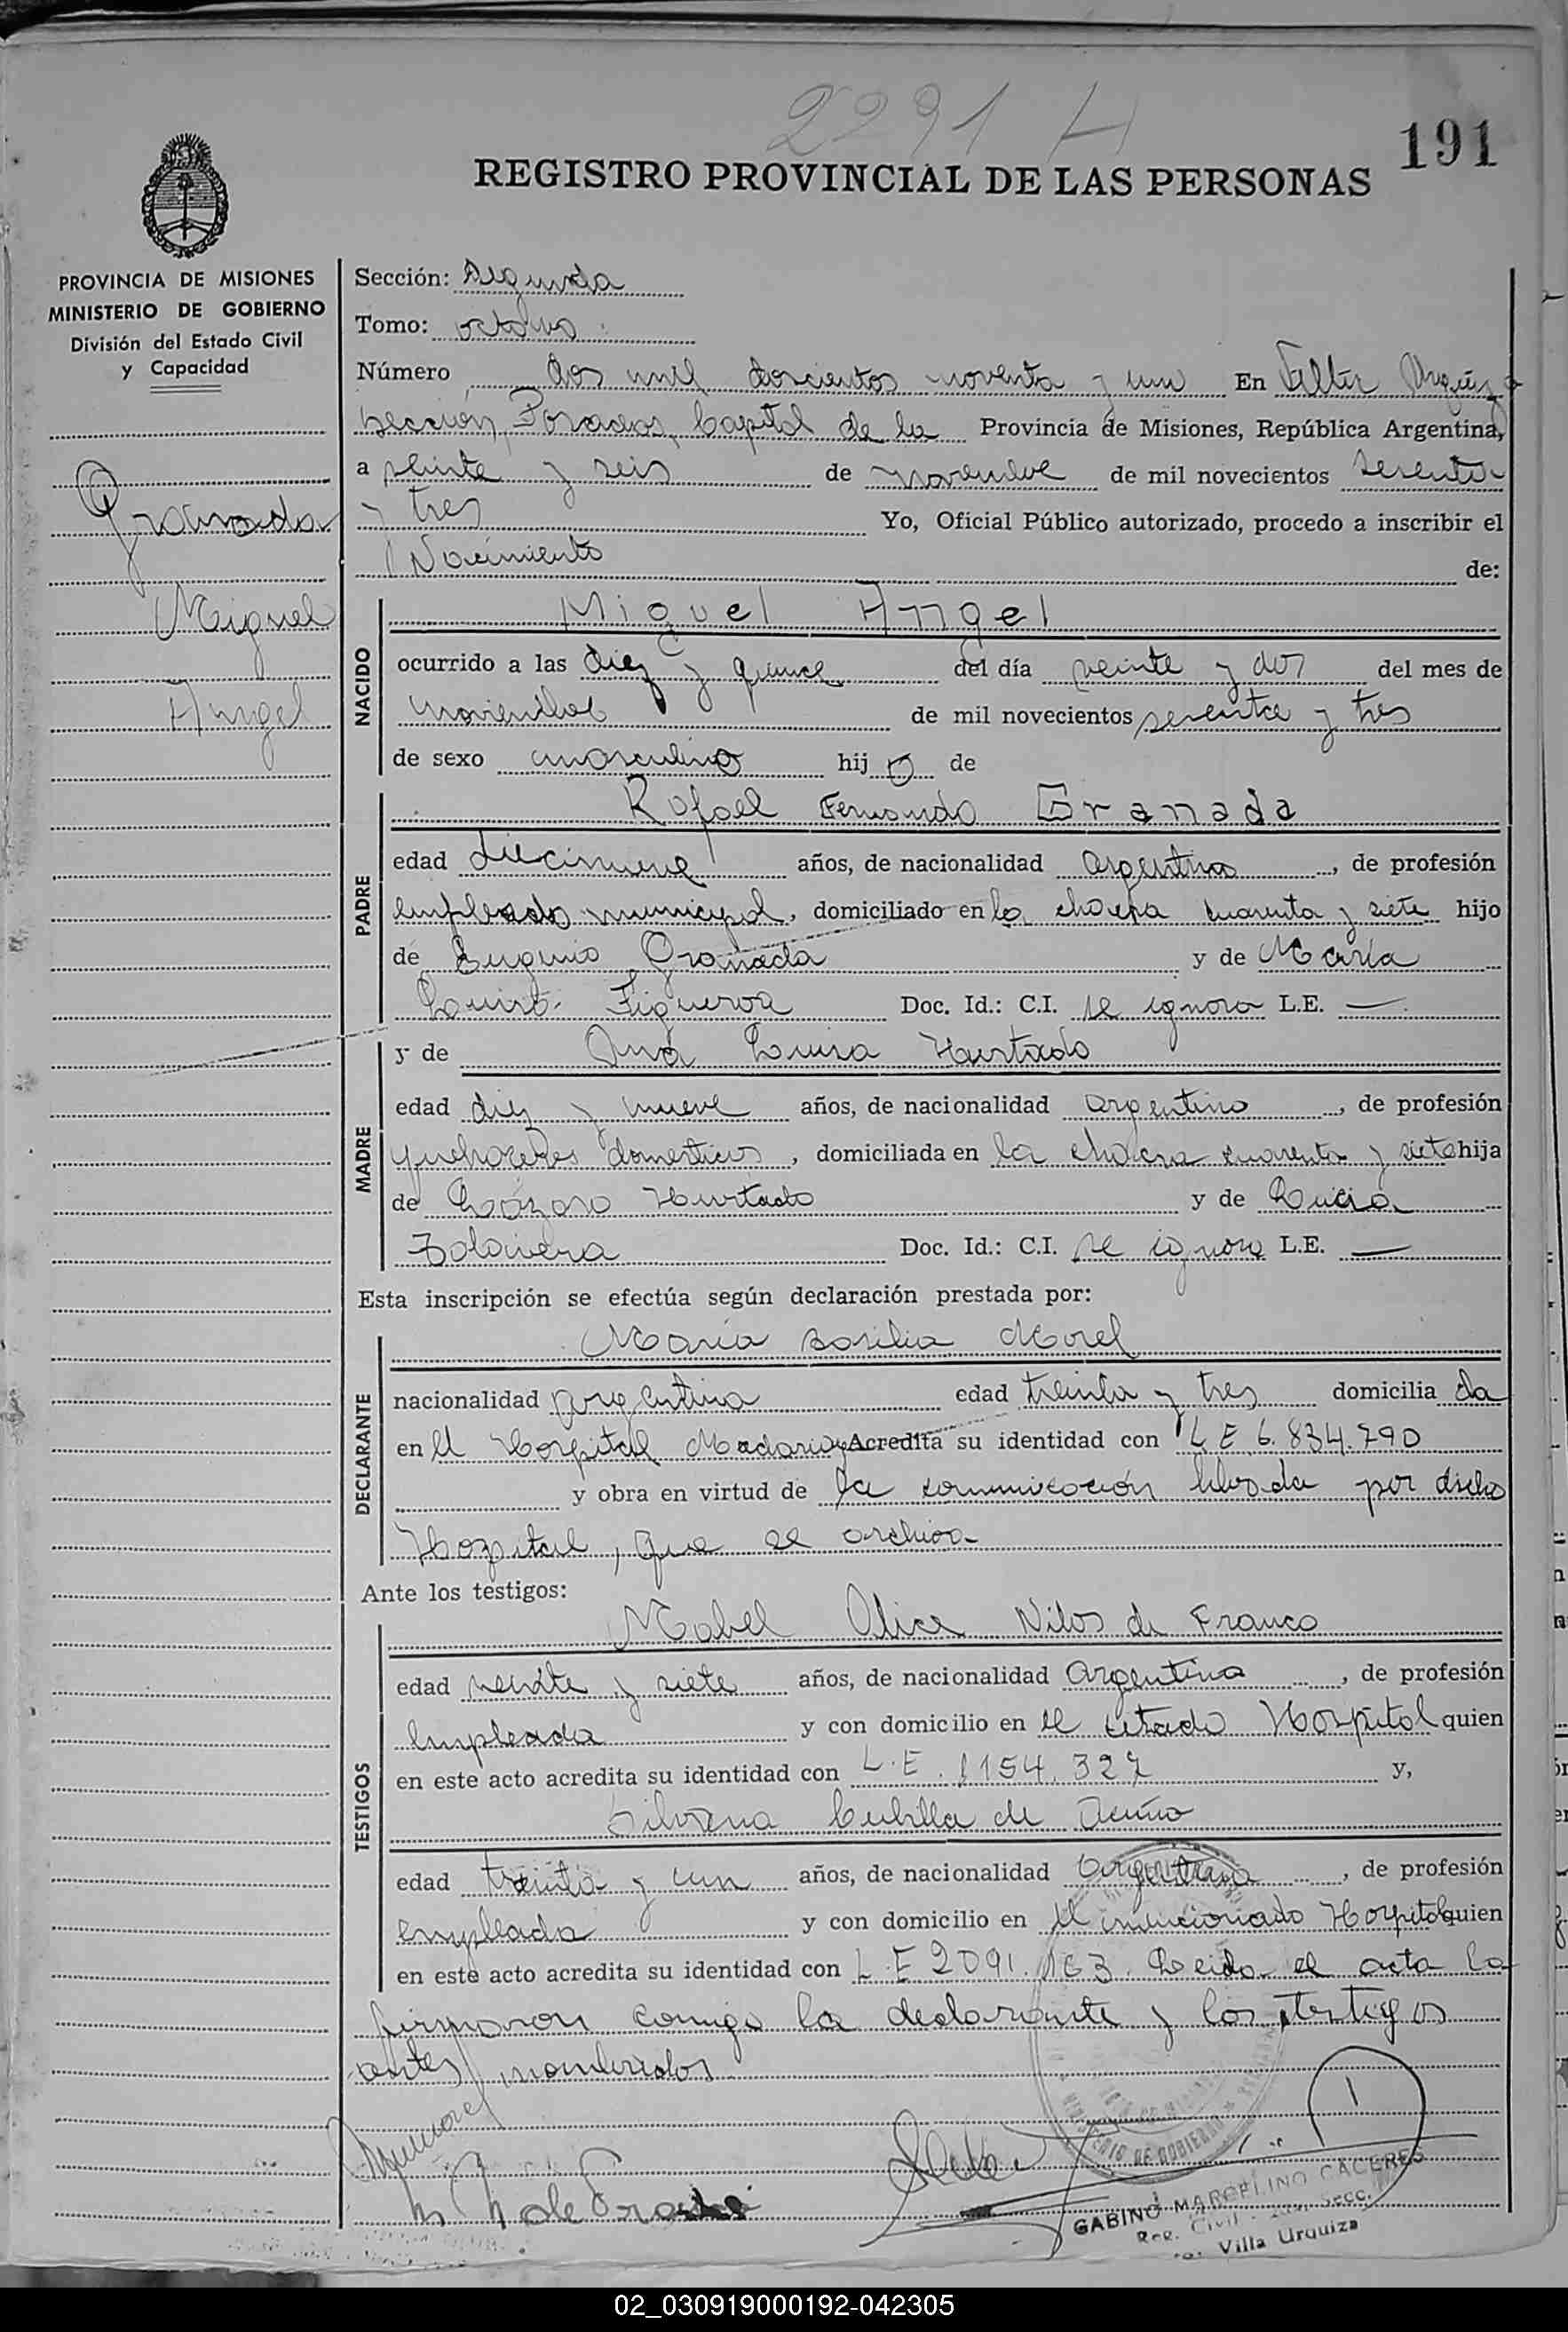 2291 H
191
REGISTRO PROVINCIAL DE LAS PERSONAS
PROVINCIA DE MISIONES
MINISTERIO DE GOBIERNO
División del Estado Civil
y Capacidad
Granada
Miguel
Angel
Sección: Segunda
Tomo: octavo
Número dos mil doscientos noventa y uno En
Sección, Posadas, Capital de la Provincia de Misiones, República Argentina,
a veinte y seis de noviembre de mil novecientos sesenta
y tres Yo, Oficial Público autorizado, procedo a inscribir el
Nacimiento de:
NACIDO
Miguel Angel
ocurrido a las diez y quince del día veinte y dos del mes de
noviembre de mil novecientos sesenta y tres
de sexo masculino hijo de
PADRE
Rafael Fernando Granada
edad diecinueve años, de nacionalidad argentina, de profesión
empleado municipal, domiciliado en la chacra cuarenta y siete hijo
de Eugenio Granada y de María
Luisa Figueroa Doc. Id.: C.I. se ignora L.E. —
MADRE
y de Ana Luisa Hurtado
edad diez y nueve años, de nacionalidad argentina, de profesión
quehaceres domésticos, domiciliada en la chacra cuarenta y siete hija
de Lázaro Hurtado y de Lucia
Talavera Doc. Id.: C.I. se ignora L.E. —
Esta inscripción se efectúa según declaración prestada por:
DECLARANTE
María Basilia Morel
nacionalidad argentina edad treinta y tres domiciliada
en el Hospital Madariaga Acredita su identidad con L E 6.834.790
y obra en virtud de la comunicación librada por dicho
Hospital, que se archiva
Ante los testigos:
TESTIGOS
Mabel Alice Nilos de Franco
edad veinte y siete años, de nacionalidad argentina, de profesión
empleada y con domicilio en el citado Hospital quien
en este acto acredita su identidad con L.E. 1154.327 y,
Silvana Cubilla de Acuña
edad treinta y un años, de nacionalidad argentina, de profesión
empleada y con domicilio en el mencionado Hospital quien
en este acto acredita su identidad con L.E 2091.163. Leida el acta la
firmaron conmigo la declarante y los testigos
antes nombrados
GABINO MARCELINO CACERES
Reg. Civil Secc.
Villa Urquiza
02_030919000192-042305